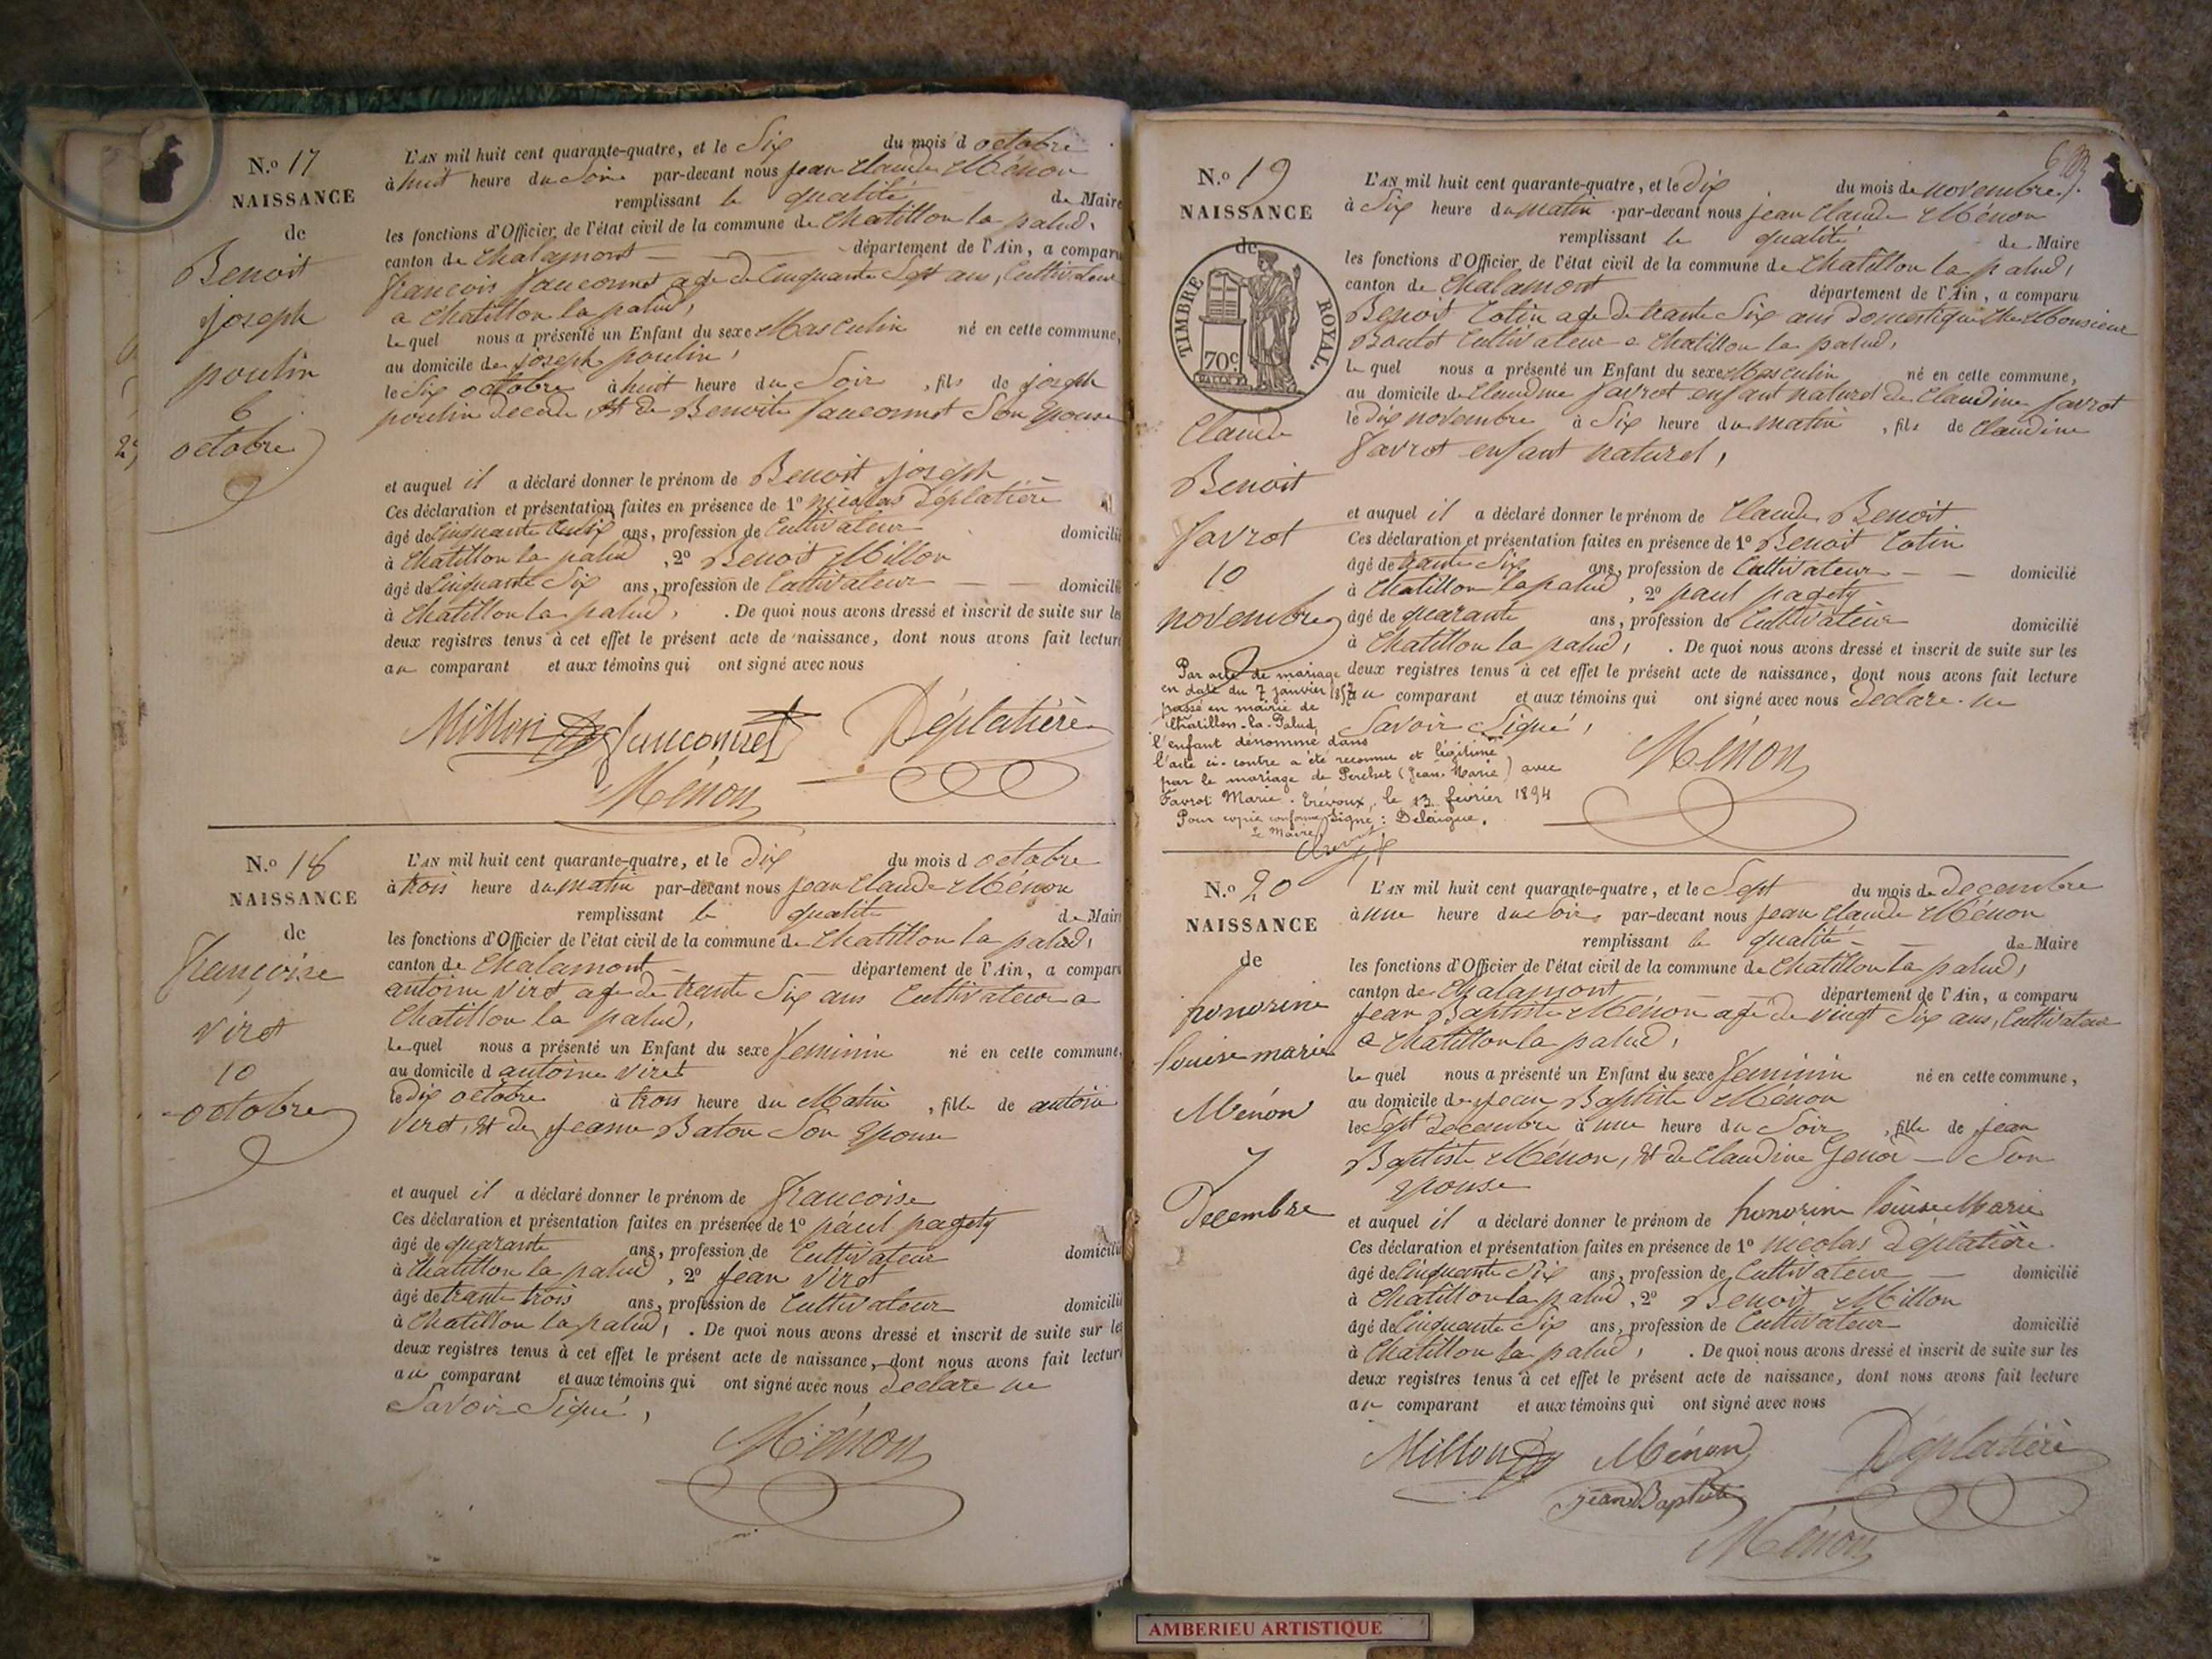 N.° 17
NAISSANCE
de
Benoit
joseph
poulin
6
octobre
L'AN mil huit cent quarante-quatre, et le Six du mois d octobre
à huit heure du Soir par-devant nous jean Claude Ménon
remplissant la qualité de Maire
les fonctions d'Officier de l'état civil de la commune de Chatillon la palud,
canton de Chalamont département de l'Ain, a comparu
francois fauconnet age de Cinquante Sept ans, Cultivateur
a Chatillon la palud,
Le quel nous a présenté un Enfant du sexe Masculin né en cette commune,
au domicile de joseph poulin,
le Six octobre à huit heure du Soir , fils de joseph
poulin décédé, Et de Benoite fauconnet Son Epouse
et auquel il a déclaré donner le prénom de Benoit joseph
Ces déclaration et présentation faites en présence de 1° nicolas Déplatière
âgé de Cinquante ans, profession de Cultivateur domicilié
à Chatillon la palud , 2° Benoit Millon
âgé de Cinquante Six ans, profession de Cultivateur domicilié
à Chatillon la palud, . De quoi nous avons dressé et inscrit de suite sur les
deux registres tenus à cet effet le présent acte de naissance, dont nous avons fait lecture
au comparant et aux témoins qui ont signé avec nous
Millon fauconnet Déplatière
Ménon
N.° 18
NAISSANCE
de
françoise
viret
10
octobre
L'AN mil huit cent quarante-quatre, et le Dix du mois d octobre
à trois heure du matin par-devant nous jean Claude Ménon
remplissant la qualité de Maire
les fonctions d'Officier de l'état civil de la commune de Chatillon la palud,
canton de Chalamont département de l'Ain, a comparu
antoine viret age de trente Six ans Cultivateur a
Chatillon la palud,
Le quel nous a présenté un Enfant du sexe feminin né en cette commune,
au domicile d antoine viret
le Dix octobre à trois heure du Matin , fille de antoine
viret, Et de jeanne Baton Son Epouse
et auquel il a déclaré donner le prénom de francoise
Ces déclaration et présentation faites en présence de 1° paul pagety
âgé de quarante ans, profession de Cultivateur domicilié
à Chatillon la palud , 2° jean viret
âgé de trante trois ans, profession de Cultivateur domicilié
à Chatillon la palud, . De quoi nous avons dressé et inscrit de suite sur les
deux registres tenus à cet effet le présent acte de naissance, dont nous avons fait lecture
au comparant et aux témoins qui ont signé avec nous Declare ne
Savoir Signé,
Ménon
N.° 19
NAISSANCE
de
TIMBRE ROYAL.
70c
Claude
Benoit
favrot
10
novembre
L'AN mil huit cent quarante-quatre, et le Dix du mois de novembre
à Six heure du matin par-devant nous jean Claude Ménon
remplissant la qualité de Maire
les fonctions d'Officier de l'état civil de la commune de Chatillon la palud,
canton de Chalamont département de l'Ain, a comparu
Benoit Cotin age de trante Six ans Domestique Chez Monsieur
Boulot Cultivateur a Chatillon la palud,
le quel nous a présenté un Enfant du sexe Masculin né en cette commune,
au domicile de Claudine favrot enfant naturel de Claudine favrot
le dix novembre à Six heure du matin , fils de Claudine
favrot enfant naturel,
et auquel il a déclaré donner le prénom de Claude Benoit
Ces déclaration et présentation faites en présence de 1° Benoit Cotin
âgé de trante Six ans, profession de Cultivateur domicilié
à Chatillon la palud , 2° paul pagety
âgé de quarante ans, profession de Cultivateur domicilié
à Chatillon la palud, . De quoi nous avons dressé et inscrit de suite sur les
deux registres tenus à cet effet le présent acte de naissance, dont nous avons fait lecture
au comparant et aux témoins qui ont signé avec nous Declare ne
Savoir Signé,
Ménon
Par acte de mariage
en date du 7 janvier
passé en mairie de
Chatillon-la-Palud,
l'enfant dénommé dans
l'acte ci-contre a été reconnu et légitimé
par le mariage de Perchet (Jean-Marie) avec
Favrot Marie. Trévoux, le 13 février 1894
Pour copie conforme Signé: Delaigue.
Le Maire
N.° 20
NAISSANCE
de
honorine
louise marie
Ménon
7
Decembre
L'AN mil huit cent quarante-quatre, et le Sept du mois de Decembre
à une heure du Soir par-devant nous jean Claude Ménon
remplissant la qualité de Maire
les fonctions d'Officier de l'état civil de la commune de Chatillon la palud,
canton de Chalamont département de l'Ain, a comparu
jean Baptiste Ménon age de vingt Six ans, Cultivateur
a Chatillon la palud,
le quel nous a présenté un Enfant du sexe feminin né en cette commune,
au domicile de jean Baptiste Ménon
le Sept Decembre à une heure du Soir , fille de jean
Baptiste Ménon, Et de Claudine Son
Epouse
et auquel il a déclaré donner le prénom de honorine louise Marie
Ces déclaration et présentation faites en présence de 1° nicolas Déplatière
âgé de Cinquante Six ans, profession de Cultivateur domicilié
à Chatillon la palud , 2° Benoit Millon
âgé de Cinquante Six ans, profession de Cultivateur domicilié
à Chatillon la palud, . De quoi nous avons dressé et inscrit de suite sur les
deux registres tenus à cet effet le présent acte de naissance, dont nous avons fait lecture
au comparant et aux témoins qui ont signé avec nous
Millon Ménon Déplatière
jean Baptiste
Ménon
AMBERIEU ARTISTIQUE